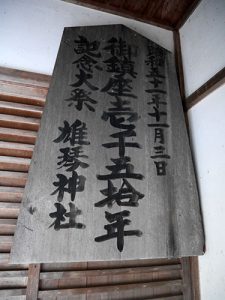 昭和五十一年十一月三日
御鎮座壱千五拾年
記念大祭 雄琴神社